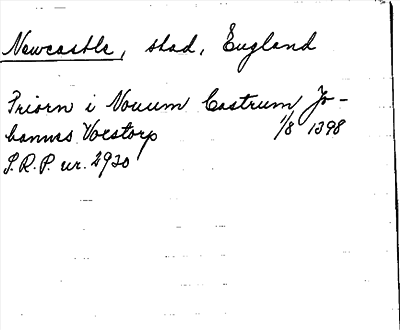 Newcastle, stad, England
Priorn i Nouum Castrum Jo-
hannes Voestorp 1/8 1398
S.R.P. nr. 2930